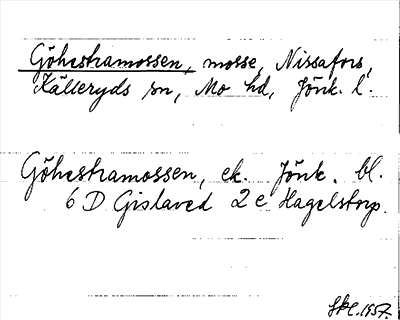 Göhestramossen, mosse, Nissafors,
Källeryds sn, Mo hd, Jönk. l.
Göhestramossen, ek. Jönk. bl.
6 D Gislaved 2 e Hagelstorp.
1957.